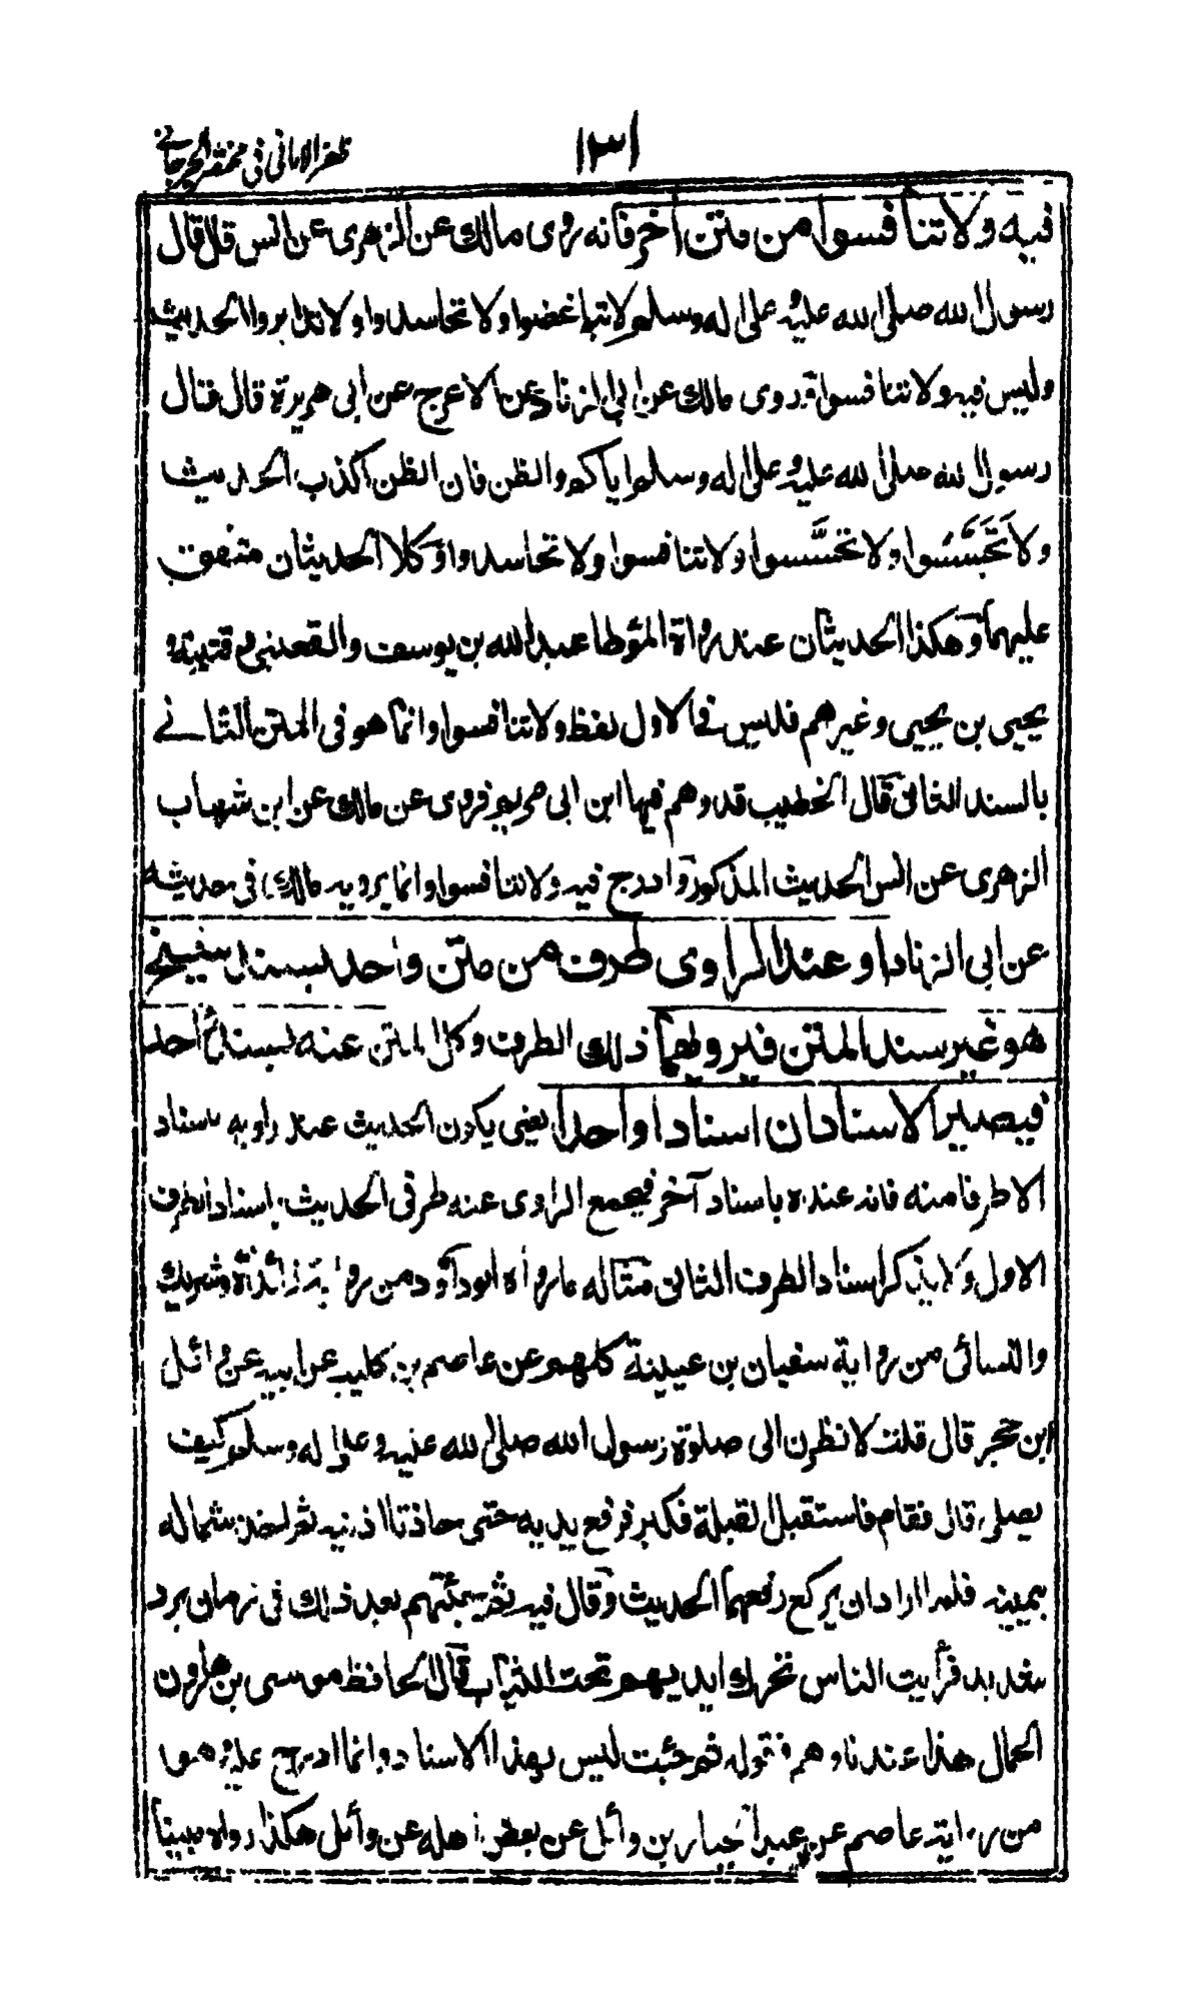 ١٣١
ظفر الامانى فى مختصر الجرجانے
فيه ولا تنافسوا من متن آخر فانه روى مالك عن الزهرى عن انس قال قال
رسول الله صلى الله عليه وعلى اله وسلم لا تباغضوا ولا تحاسدوا ولا تدابروا الحديث
وليس فيه ولا تنافسوا وروى مالك عن ابى الزناد عن الاعرج عن ابى هريرة قال قال
رسول الله صلى الله عليه وعلى اله وسلم اياكم والظن فان الظن اكذب الحديث
ولا تَجَسَّسُوا ولا تحسَّسوا ولا تنافسوا ولا تحاسدوا وكلا الحديثان متفق
عليهما وهكذا الحديثان عند رواة المؤطا عبد الله بن يوسف والقعنبى وقتيبة و
يحيى بن يحيى وغيرهم فليس فى الاول لفظ ولا تنافسوا وانما هو فى المتن الثانے
بالسند الثانى قال الخطيب قد وهم فيها ابن ابى مريم فروى عن مالك عن ابن شهاب
الزهرى عن انس الحديث المذكور وادرج فيه ولا تنافسوا وانما يرويه مالك فى حديثه
عن ابى الزناد او عند الراوى طرف من متن واحد بسند شيخ
هو غير سند المتن فيرويهما ذلك الطرف وكل المتن عنه بسند احد
فيصير الاسنادان اسنادا واحدا يعنى يكون الحديث عند راويه باسناد
الا طرفا منه فانه عنده باسناد آخر فيجمع الراوى عنه طرفى الحديث باسناد الطرف
الاول ولا يذكر اسناد الطرف الثانى مثاله ما رواه ابوداؤد من رواية زائدة وشريك
والنسائى من رواية سفيان بن عيينة كلهم عن عاصم بن كليب عن ابيه عن وائل
ابن حجر قال قلت لانظرن الى صلوة رسول الله صلى الله عليه وعلى اله وسلم كيف
يصلى قال فقام فاستقبل القبلة فكبر فرفع يديه حتى حاذتا اذنيه ثم اخذ شماله
بيمينه فلما اراد ان يركع رفعهما الحديث وقال فيه ثم جئتهم بعد ذلك فى زمان برد
شديد فرأيت الناس تحرك ايديهم تحت الثياب قال الحافظ موسى بن هارون
الحمال هذا عندنا وهم فقوله ثم جئت ليس بهذا الاسناد وانما ادرج عليه وهو
من رواية عاصم عن عبد الجبار بن وائل عن بعض اهله عن وائل هكذا رواه مبينا